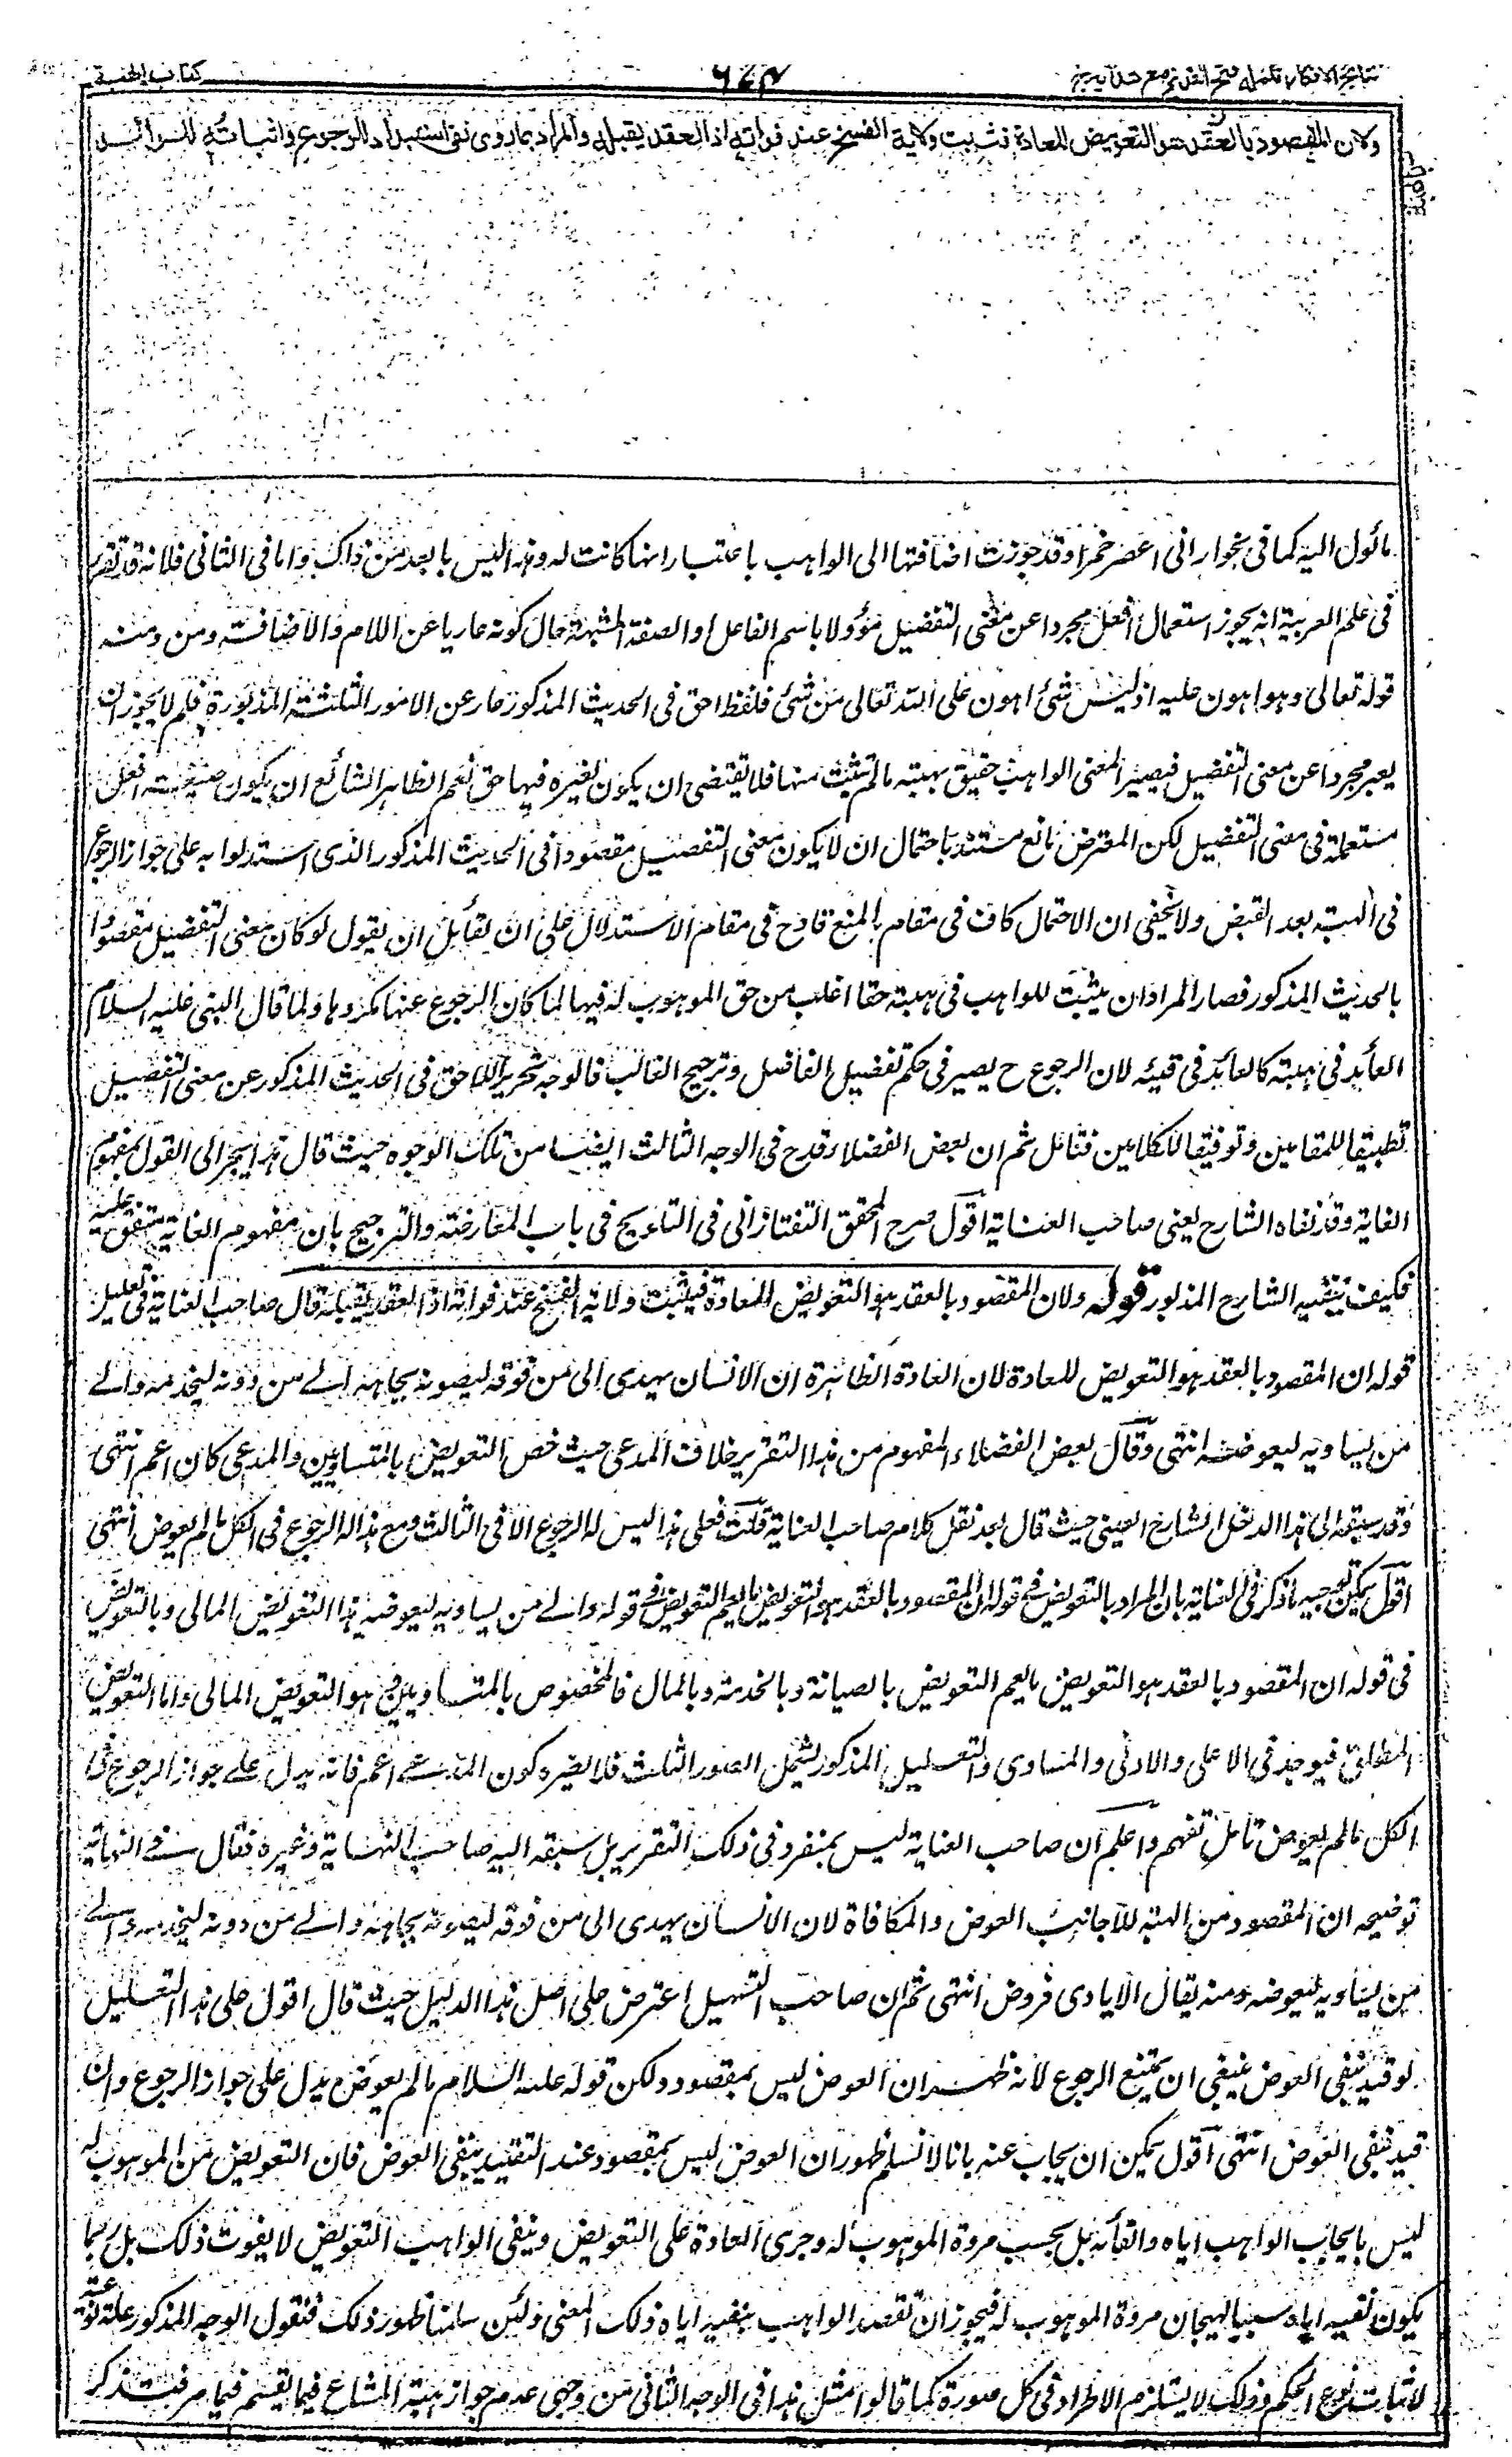 نتائج الافكار تكملہ فتح القدير مع هدايہ ج ٦٧٤ كتاب الهبة
ولان المقصود بالعقد هو التعويض للعادة فتثبت ولاية الفسخ عند فواته اذ العقد يقبله والمراد بما روى نفى استبداد الرجوع واثباته للوالد
مائول اليه كما فى نجوارانى اعصر خمرا وقد جوزت اضافتها الى الواهب باعتبار انها كانت له وهذا ليس بابعد من ذاك واما فى الثانى فلانه قد تقرر
فى علم العربية انه يجوز استعمال افعل مجردا عن معنى التفضيل مؤولا باسم الفاعل او الصفة المشبهة حال كونه عاريا عن اللام والاضافة ومن ومنه
قوله تعالى وهو اهون عليه اذ ليس شئ اهون على الله تعالى من شئ فلفظ احق فى الحديث المذكور عار عن الامور الثلثة المذكورة فلم لا يجوز ان
يعبر مجردا عن معنى التفضيل فيصير المعنى الواهب حقيق بهبته ما لم يثب منها فلا يقتضى ان يكون لغيره فيها حق نعم الظاهر الشائع ان يكون صيغة افعل
مستعملة فى معنى التفضيل لكن المعترض مانع مستند باحتمال ان لا يكون معنى التفضيل مقصودا فى الحديث المذكور الذى استدلوا به على جواز الرجوع
فى الهبة بعد القبض ولا يخفى ان الاحتمال كاف فى مقام المنع قادح فى مقام الاستدلال على ان لقائل ان يقول لو كان معنى التفضيل مقصودا
بالحديث المذكور فصار المراد ان يثبت للواهب فى هبته حقا اغلب من حق الموهوب له فيها لما كان الرجوع عنها مكروها ولما قال النبى عليه السلام
العائد فى هبته كالعائد فى قيئه لان الرجوع ح يصير فى حكم تفضيل الفاضل وترجيح الغالب فالوجه تجريد الاحق فى الحديث المذكور عن معنى التفضيل
تطبيقا للمقامين وتوفيقا للكلامين فتامل ثم ان بعض الفضلاء قدح فى الوجه الثالث ايضا من تلك الوجوه حيث قال هذا ينجر الى القول بمفهوم
الغاية وقد نفاه الشارح يعنى صاحب العناية اقول صرح المحقق التفتازانى فى التلويح فى باب المعارضة والترجيح بان مفهوم الغاية متفق عليه
فكيف ينفيه الشارح المذكور قوله ولان المقصود بالعقد هو التعويض للعادة فيثبت ولاية الفسخ عند فواته اذ العقد يقبله قال صاحب العناية فى تعليل
قوله ان المقصود بالعقد هو التعويض للعادة لان العادة الظاهرة ان الانسان يهدى الى من فوقه ليصونه بجاهه والى من دونه ليخدمه والى
من يساويه ليعوضه انتهى وقال بعض الفضلاء المفهوم من هذا التقرير خلاف المدعى حيث خص التعويض بالمتساويين والمدعى كان اعم انتهى
وقد سبقه الى هذا الدخل الشارح العينى حيث قال بعد نقل كلام صاحب العناية قلت فعلى هذا ليس له الرجوع الا فى الثالث ومع هذا له الرجوع فى الكل ما لم يعوض انتهى
اقول يمكن توجيه ما ذكر فى العناية بان المراد بالتعويض فى قوله ان المقصود بالعقد هو التعويض ما يعم التعويض وفى قوله والى من يساويه ليعوضه هذا التعويض المالى وبالتعويض
فى قوله ان المقصود بالعقد هو التعويض ما يعم التعويض بالصيانة وبالخدمة وبالمال فالمخصوص بالمتساويين هو التعويض المالى واما التعويض
المطلق فيوجد فى الاعلى والادنى والمساوى والتعليل المذكور يشمل الصور الثلث فلا يضره كون المدعى اعم فانه يدل على جواز الرجوع فى
الكل ما لم يعوض تامل تفهم واعلم ان صاحب العناية ليس بمنفرد فى ذلك التقرير بل سبقه اليه صاحب النهاية وغيره فقال فى النهاية
توضيحه ان المقصود من الهبة للاجانب العوض والمكافاة لان الانسان يهدى الى من فوقه ليصونه بجاهه والى من دونه ليخدمه والى
من يساويه ليعوضه ومنه يقال الايادى قروض انتهى ثم ان صاحب التسهيل اعترض على اصل هذا الدليل حيث قال اقول على هذا التعليل
لو قيد بنفى العوض ينبغى ان يمتنع الرجوع لانه ظهر ان العوض ليس بمقصود ولكن قوله عليه السلام ما لم يعوض يدل على جواز الرجوع وان
قيد بنفى العوض انتهى اقول يمكن ان يجاب عنه بانا لا نسلم ظهور ان العوض ليس بمقصود عند التقييد بنفى العوض فان التعويض من الموهوب له
ليس بايجاب الواهب اياه والقائه بل بحسب مروة الموهوب له وجرى العادة على التعويض ونفى الواهب التعويض لا يفوت ذلك بل ربما
يكون نفيه اياه سببا لهيجان مروة الموهوب له فيجوز ان يقصد الواهب بنفيه اياه ذلك المعنى ولئن سلمنا ظهور ذلك فنقول الوجه المذكور علة نوعية
لاثبات نوع الحكم وذلك لا يستلزم الاطراد فى كل صورة كما قالوا مثل هذا فى الوجه الثانى من وجهى عدم جواز هبة المشاع فيما يقسم فيما مر فتذكر